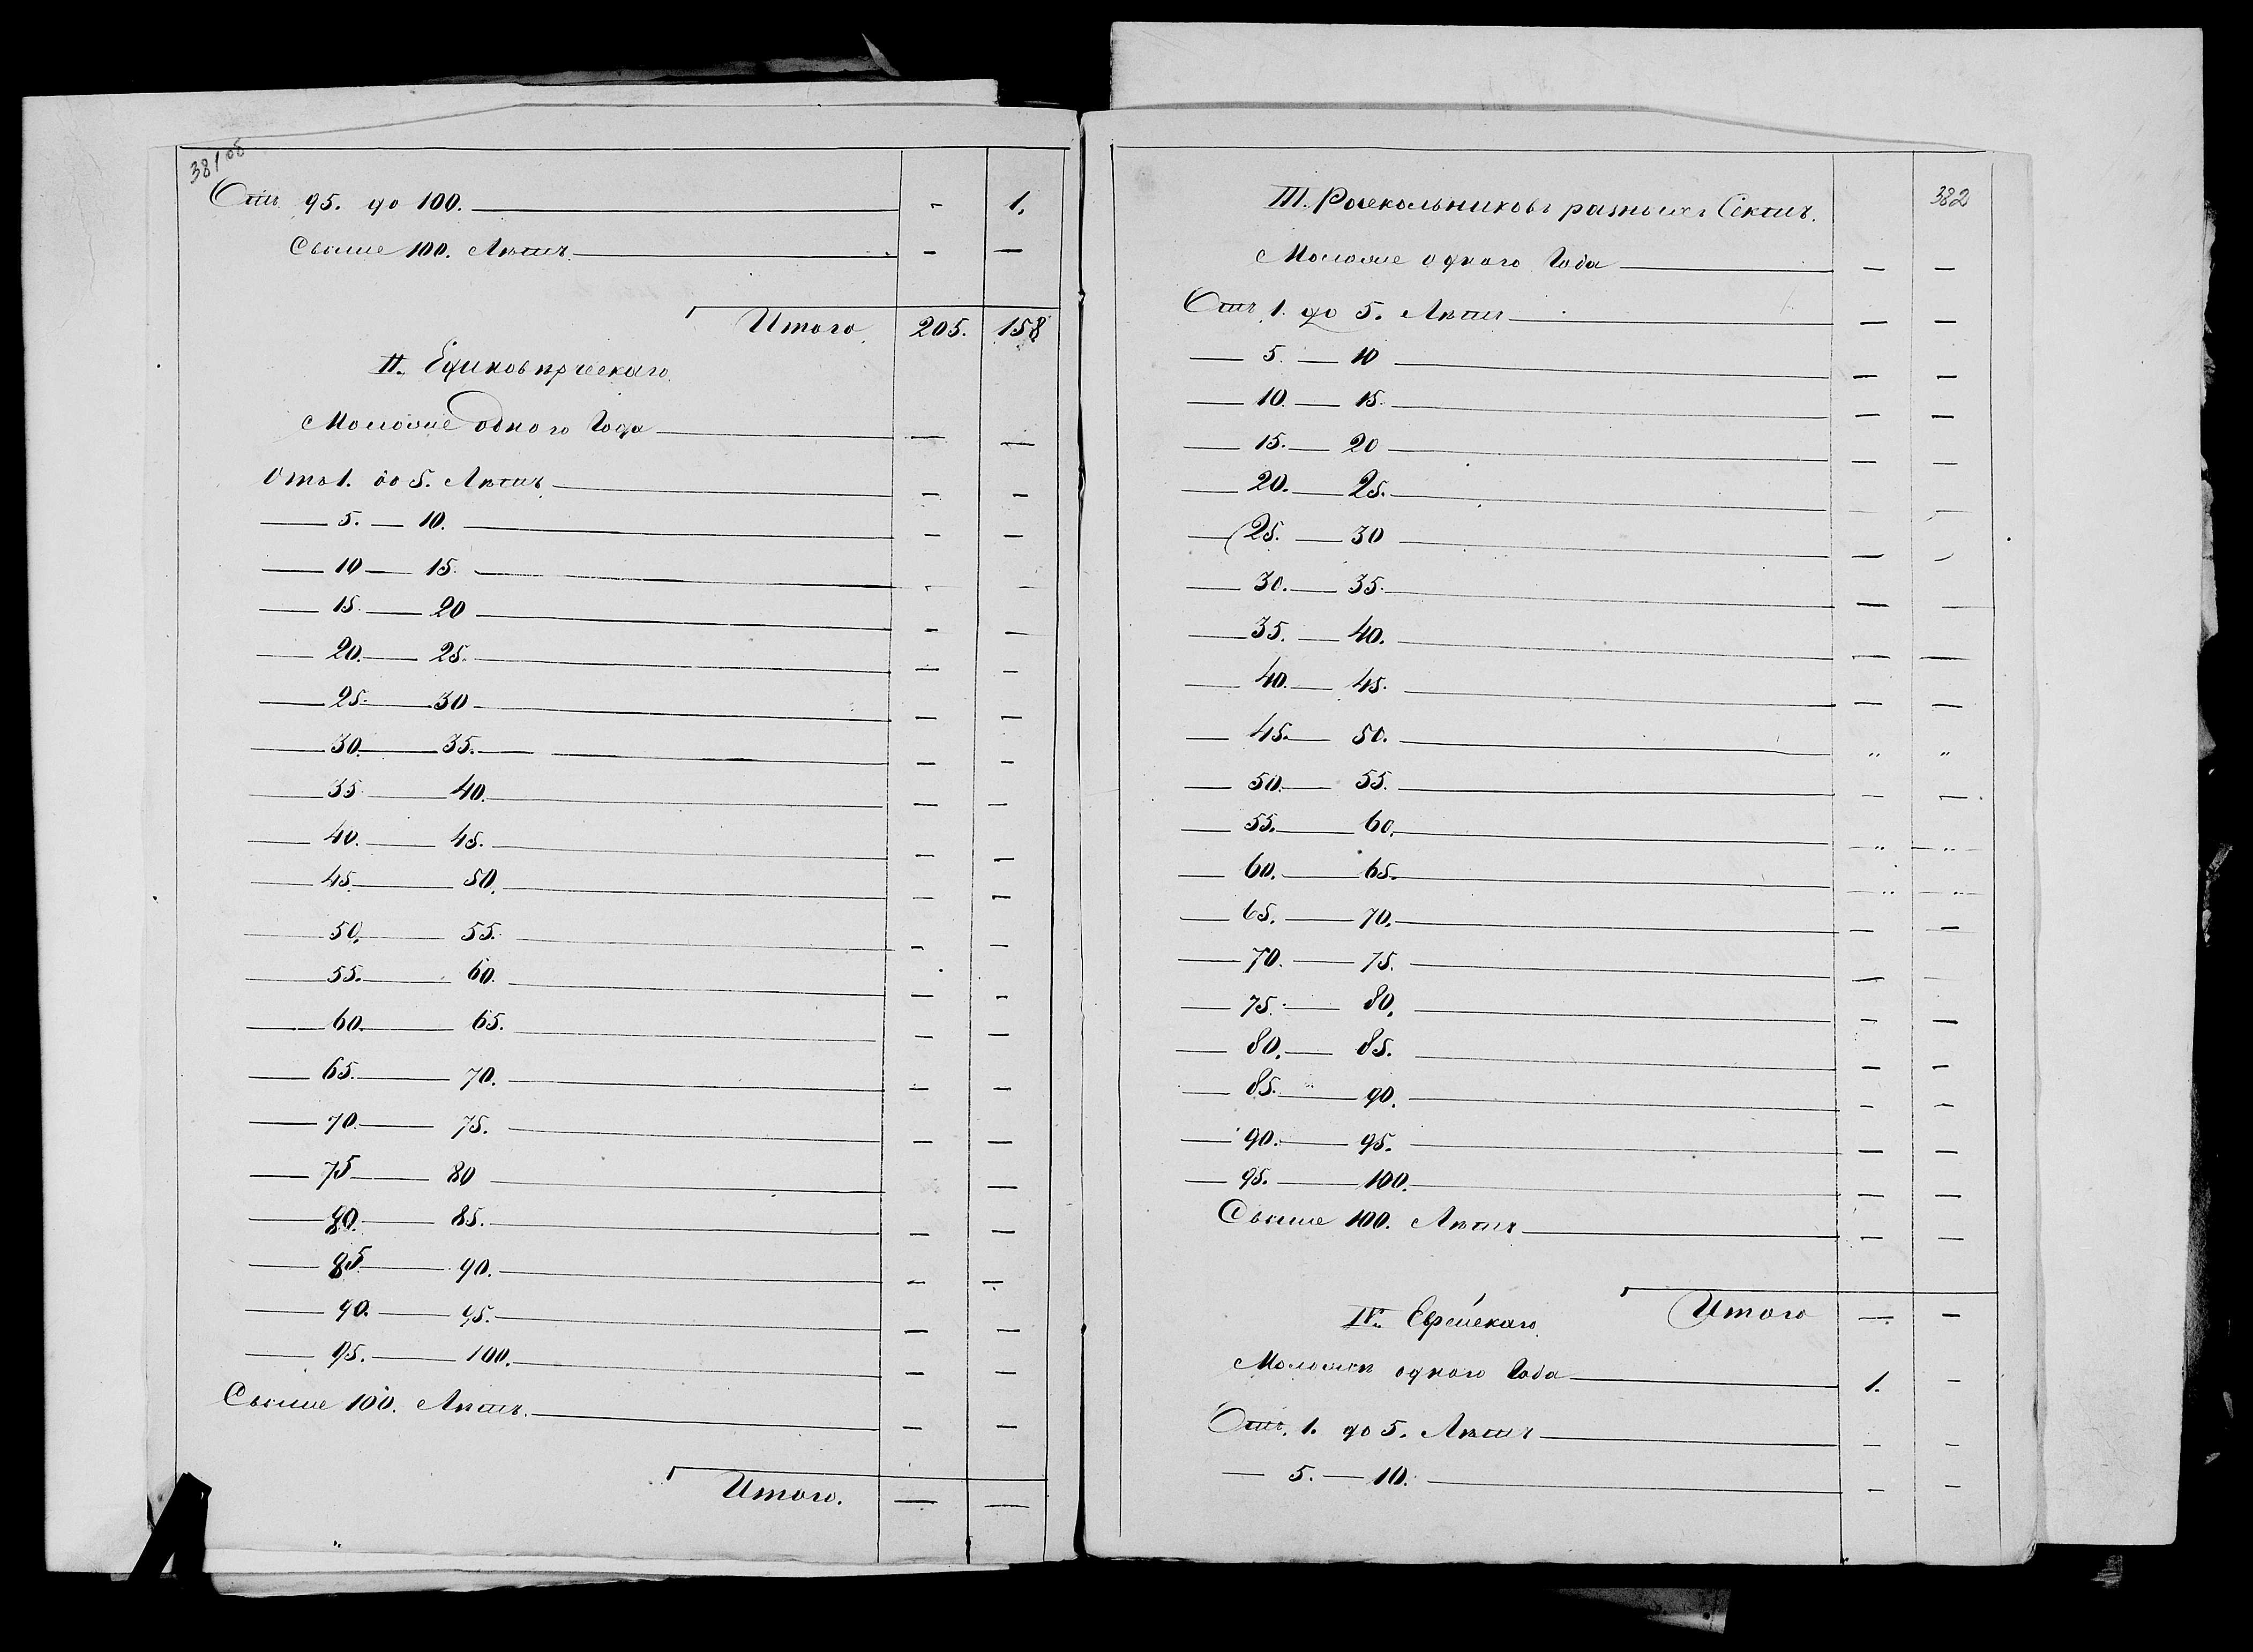 381 об
Отъ 95. до 100. — - 1.
Свыше 100. Лѣтъ. — — —
Итого 205. 158
II. Единовѣрческаго
Моложе одного Года — — —
Отъ 1. до 5. Лѣтъ. — — —
— 5. — 10. — — —
— 10 — 15. — - —
— 15. — 20 — — —
— 20. — 25. — — —
— 25. — 30 — — —
— 30. — 35. — — —
— 35 — 40. — — —
— 40. — 45. — — —
— 45. — 50. — — —
— 50. — 55. — — —
— 55. — 60. — — —
— 60. — 65. — — —
— 65. — 70. — — —
— 70. — 75. — — —
— 75 — 80 — —
— 80. — 85. — — —
— 85 — 90. — — —
— 90. — 95. — — —
— 95. — 100. — — —
Свыше 100. Лѣтъ. — — —
Итого. — —
382
III. Раскольниковъ разныхъ Сектъ.
Моложе одного Года — — —
Отъ 1. до 5. Лѣтъ — — —
— 5. — 10 — — —
— 10. — 15. — — —
— 15. — 20 — — —
— 20. — 25. — — —
— 25. — 30 — — —
— 30. — 35. — — —
— 35. — 40. — — —
— 40. — 45. — — —
— 45. — 50. — „ „
— 50. — 55. — — —
— 55. — 60. — „ „
— 60. — 65. — „ „
— 65. — 70. — — —
— 70. — 75. — — —
— 75. — 80. — — —
— 80. — 85. — — —
— 85. — 90. — — —
— 90. — 95. — — —
— 95. — 100. — — —
Свыше 100. Лѣтъ — — —
Итого — —
IV. Еврейскаго
Моложе одного Года — 1. —
Отъ 1. до 5. Лѣтъ — — —
— 5. — 10. — — —